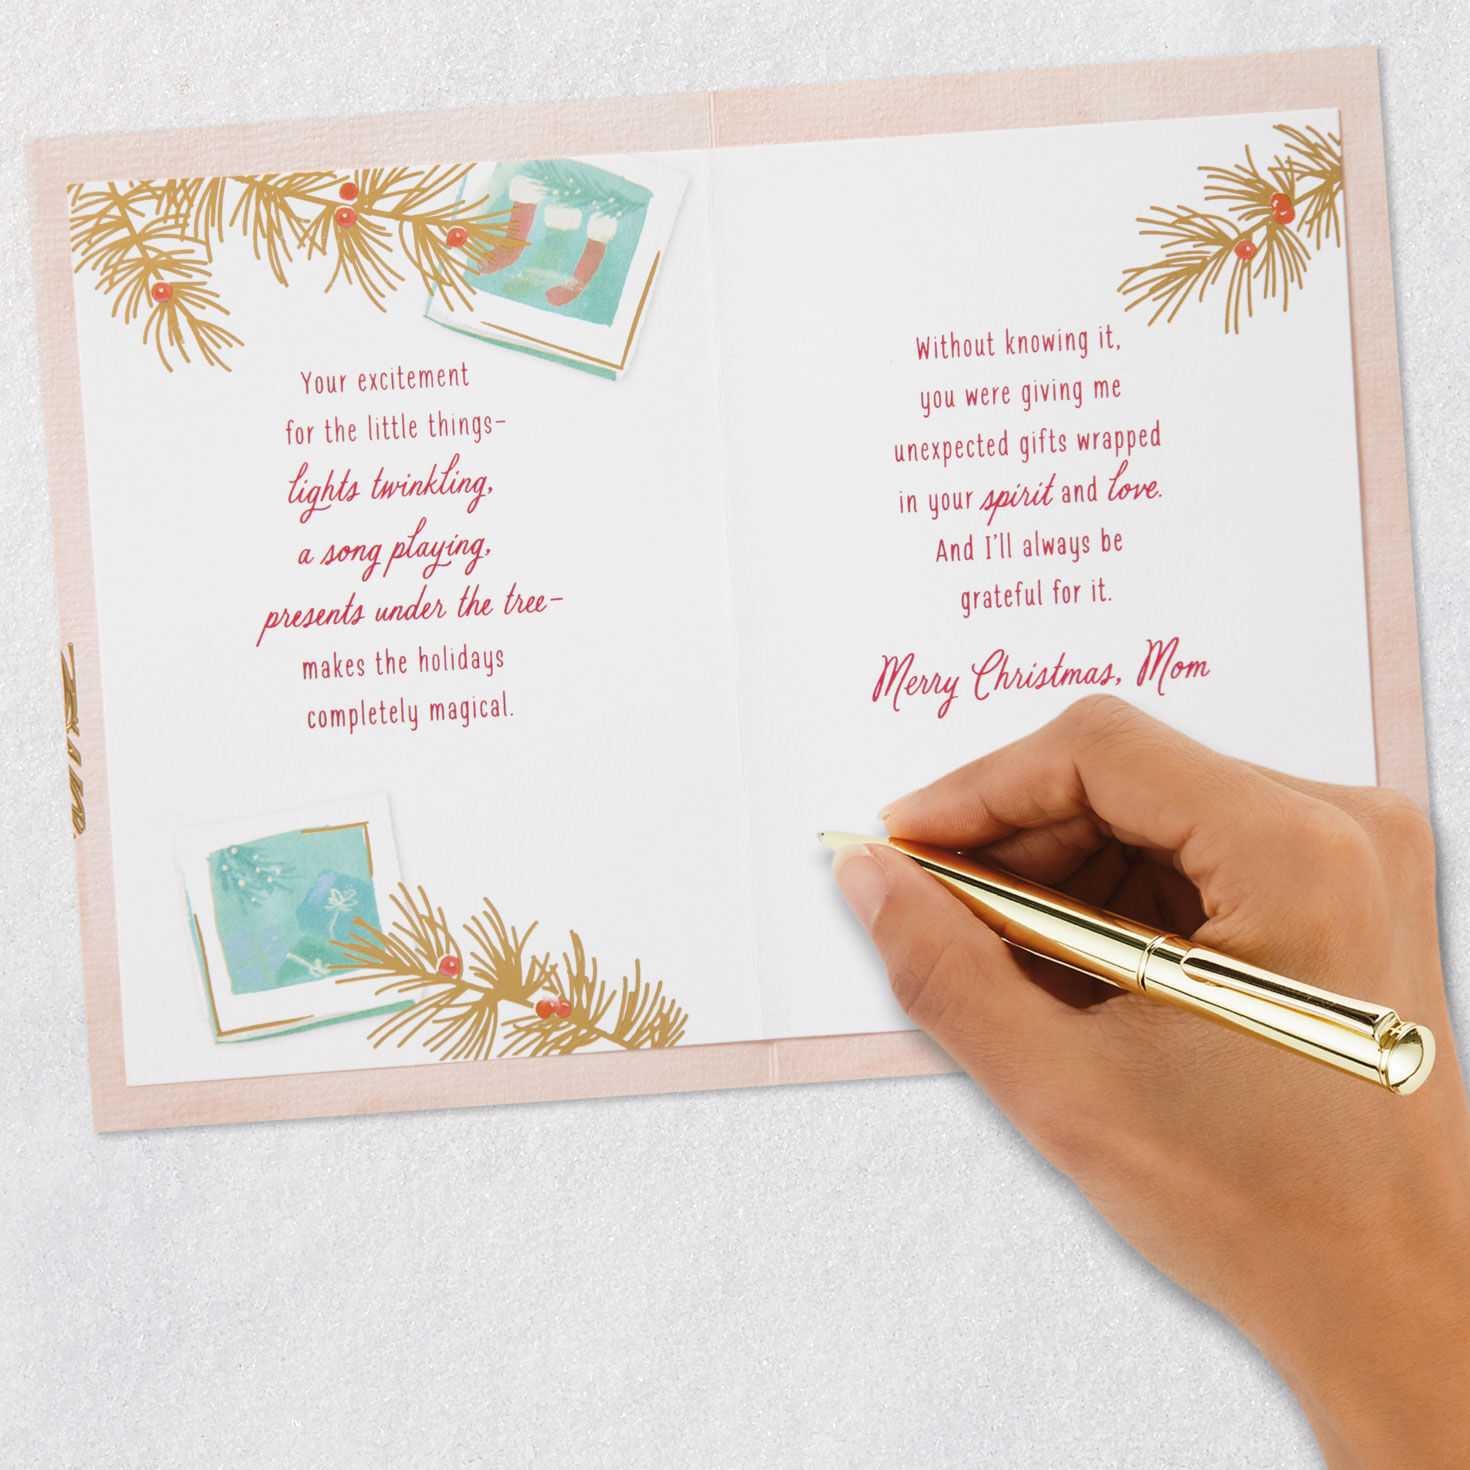 Your excitement
for the little things–
lights twinkling,
a song playing,
presents under the tree–
makes the holidays
completely magical.
Without knowing it,
you were giving me
unexpected gifts wrapped
in your spirit and love.
And I'll always be
grateful for it.
Merry Christmas, Mom